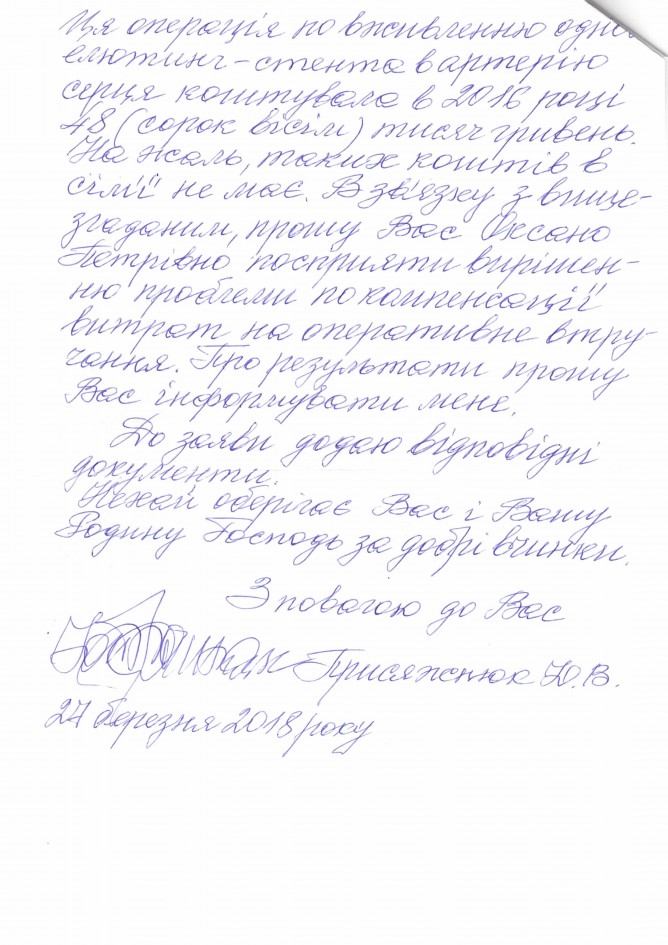 Ця операція по вживленню одно
елютинг-стента в артерію
серця коштувала в 2016 році
48 (сорок вісім) тисяч гривень.
На жаль, таких коштів в
сім'ї не має. В зв'язку з вище-
згаданим, прошу Вас Оксано
Петрівно посприяти вирішен-
ню проблеми по компенсації
витрат на оперативне втру-
чання. Про результати прошу
Вас інформувати мене.
До заяви додаю відповідні
документи.
Нехай оберігає Вас і Вашу
Родину Господь за добрі вчинки.
З повагою до Вас
Присяжнюк Ю.В.
27 березня 2018 року